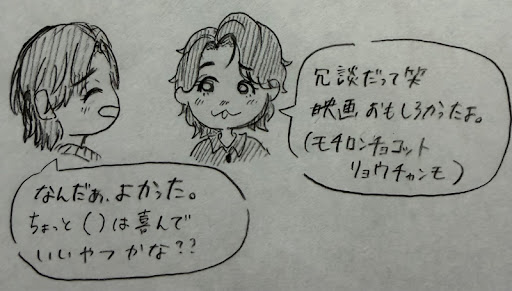 冗談だって笑
映画おもしろかったよ。
(モチロンチョコット
リョウチャンモ)
なんだぁ、よかった。
ちょっと()は喜んで
いいやつかな??